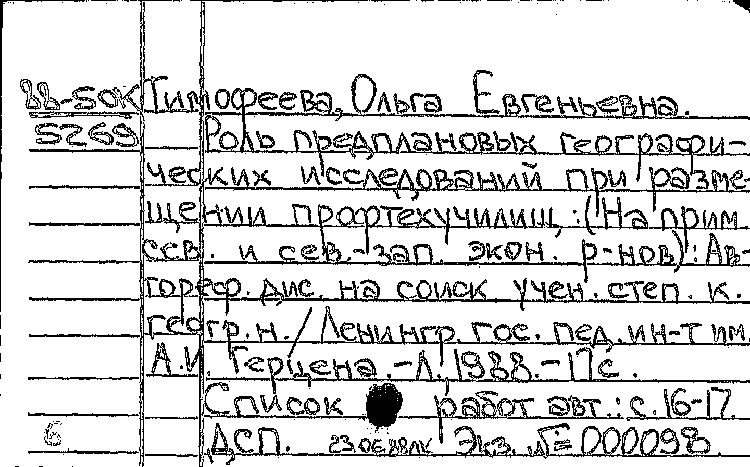 88-50К Тимофеева, Ольга Евгеньевна.
5269 Роль предплановых географи-
ческих исследований при разме-
щении профтехучилищ: (На прим.
сев. и сев.-зап. экон. р-нов): Ав-
тореф. дис. на соиск учен. степ. к.
геогр. н. / Ленингр. гос. пед. ин-т им.
А.И. Герцена. -Л. 1988. -17с.
Список работ авт.: с. 16-17
6 ДСП. 23.06.88 Экз. № 000098